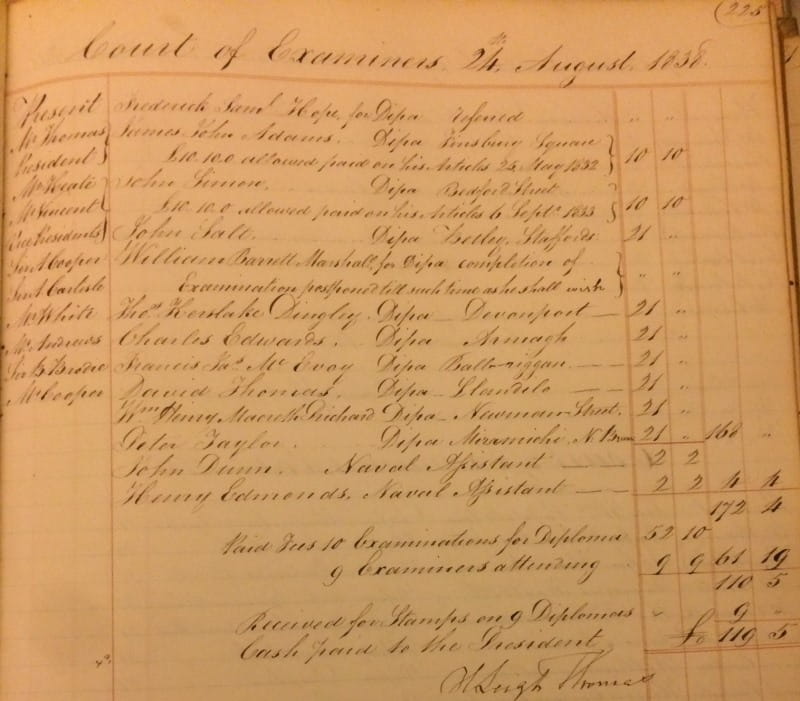 (225
Court of Examiners. 24th. August. 1838.
Present Frederick Saml. Hope, for Dipa refered " "
Mr Thomas James John Adams. Dipa Finsbury Square
President £10.10.0 allowed paid on his Articles 25 May 1832 10 10
Mr Keate John Simon. Dipa Bedford Street
Mr Vincent £10.10.0 allowed paid on his Articles 6 Septr. 1833 10 10
Vice Presidents John Salt. Dipa Betley, Staffords 21 "
Sir A Cooper William Barrett Marshall, for Dipa completion of
Sir A Carlisle Examination postponed till such time as he shall wish " "
Mr White Thos. Kerslake Dingley. Dipa Devonport 21 "
Mr Andrews Charles Edwards. Dipa Armagh 21 "
Sir B. Brodie Francis Jas. Mc Evoy Dipa Balbriggan 21 "
Mr Cooper David Thomas. Dipa Llandilo 21 "
Wm. Henry Prichard Dipa Newman Street. 21 "
Peter Taylor. Dipa Miramichi, N. 21 " 168 "
John Dunn. Naval Assistant 2 2
Henry Edmonds. Naval Assistant 2 2 4 4
172 4
Paid Fees 10 Examinations for Diploma 52 10
9 Examiners attending 9 9 61 19
110 5
Received for Stamps on 9 Diplomas " 9 "
Cash paid to the President £ 119 5
H Leigh Thomas